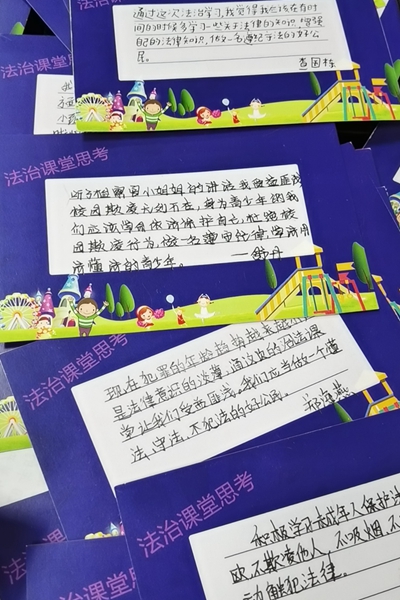 法治课堂思考
通过这次法治学习,我觉得我应该在有时
间的时候多学习一些关于法律的知识,增强
自己的法律知识,做一名遵纪守法的好公
民。
法治课堂思考
听了检察官小姐姐的讲话我受益匪浅
校园欺凌无处不在,身为青少年的我
们应该学会依法保护自己,杜绝校
园欺凌行为,做一名遵守法律,学法用
法懂法的青少年。
——舒丹
法治课堂思考
现在犯罪的年龄趋势越来越
是法律意识的淡薄,通过员的法治课
堂让我们受益匪浅。我们应当做一个懂
法,守法,不犯法的好公民。
法治课堂思考
积极学习未成年人保护法
欧,不欺凌他人,不吸烟,不
动触犯法律。